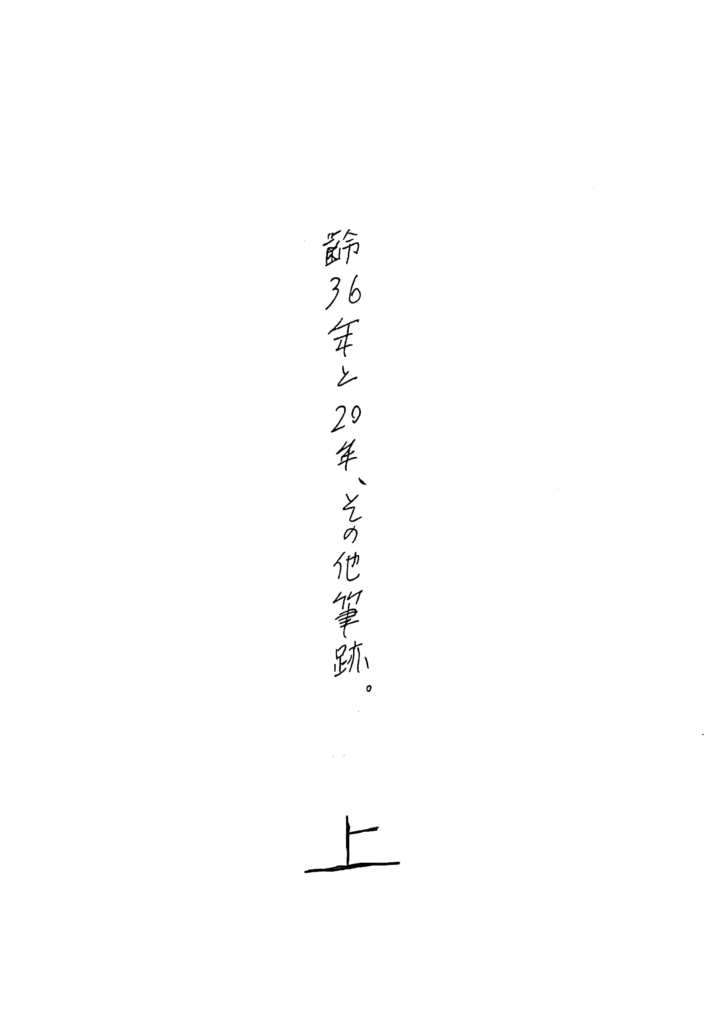 齢36年と20年、その他筆跡。
上